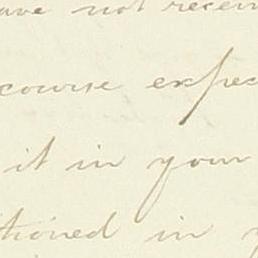 ave not receiv
course expec
it in your
tioned in y